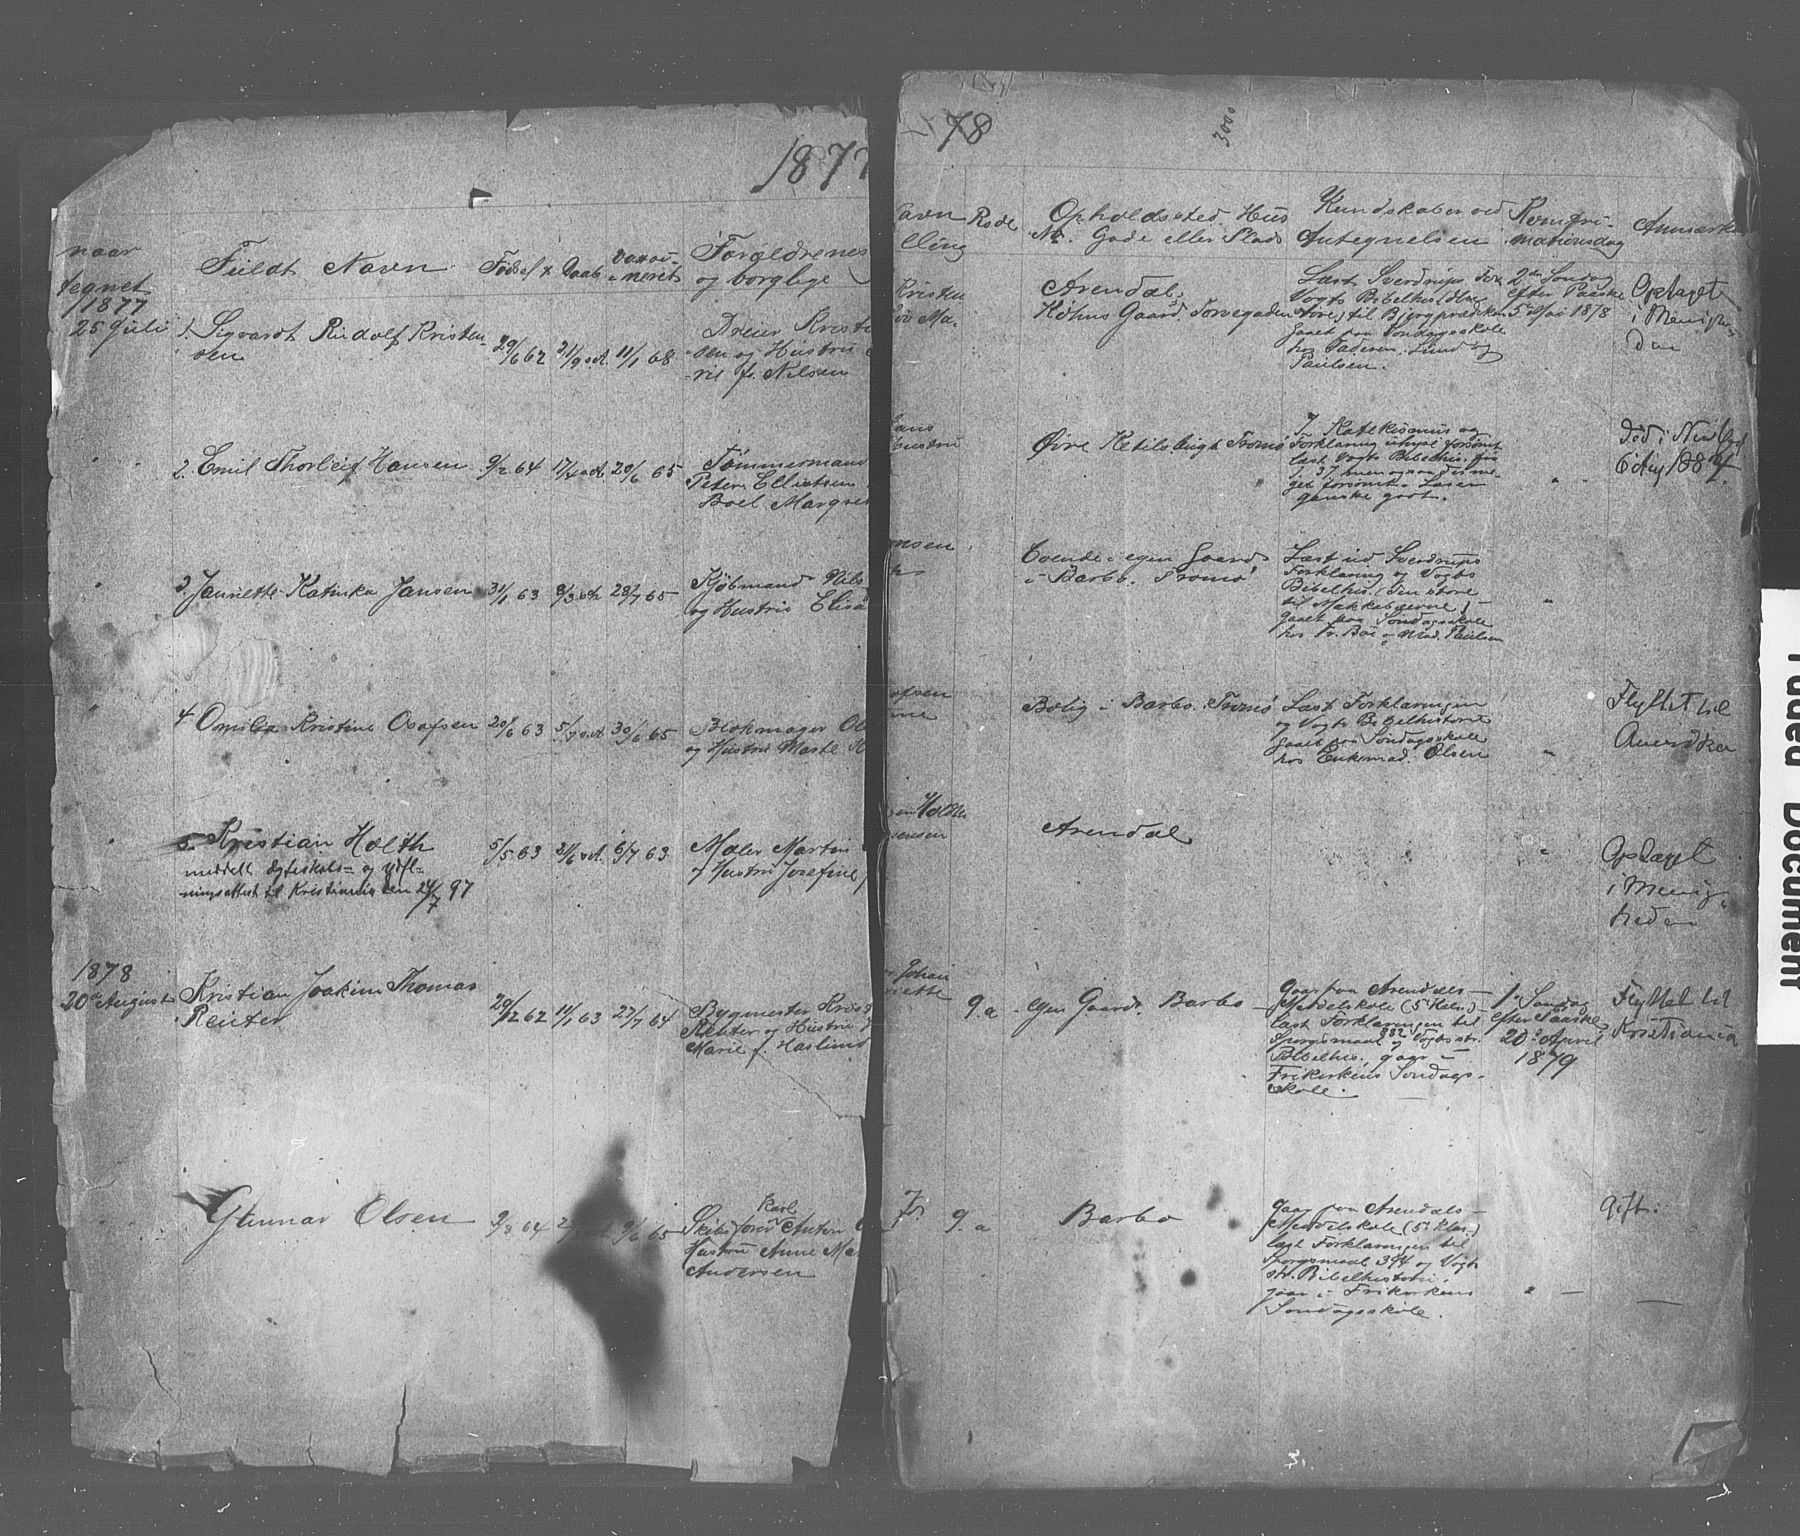 1877
78
3000
naar
tegnet
Fuldt Navn
Fødsel
Daab
vaxsi-
neret
Forældrenes
og borglige
avn
lling
Rode
Opholdssted, Hus
No. Gade eller Stads
Kundskaber ved
Antegnelsen
Komfir-
mationsdag
Anmærk
1877
25 Juli
1. Sigvardt Rudolf Kristen-
sen
29/6 62
11/1 68
Dreier Kristi
sen og Hustru
ril f. Nilsen
Kristen
Arendal.
Høhns Gaard. Torvegaden
Læst Sverdrups For.
Vogts Bibelhis. (den
store) til Bjergprædiken
gaaet paa Søndagsskole
hos Pedersen, Lund og
Paulsen.
2den Søndag
efter Paaske
5 Mai 1878
Optaget
i Menig-
den
2. Emil Thorleif Hansen
9/2 64
17/4 s.A.
20/6 65
Tømmermand
Peter Ellietsen
Boel Margret
ans
Hustru
Øvre Ketilsbugt Tromø
Katekismus og
læst Vogts Bibelhis. fra
ganske godt.
Død i New York
6 Aug 1884.
3. Jannette Katinka Jansen
31/1 63
28/7 65
Kjøbmand Nils
og Hustru Elisa
nsen
Boende i egen Gaard
i Barbo. Tromø
Læst ud Sverdrups
Forklaring og Vogts
Bibelhis. (den store
til Makkabæerne)
gaaet paa Søndagsskole
hos Fr. Boe og Mad. Paulsen
4 Omilia Kristine Olafsen
20/6 63
5/7 s.A.
30/6 65
Blokmager Ol
og Hustru Marte
afsen
ne
Bolig i Barbo. Tromø
Læst Forklaringen
og Vogts Bibelhistorie
gaaet paa Søndagsskole
hos Enkemad. Olsen
Flyttet til
Amerika
5. Kristian Holth
meddelt
ningsattest til Kristiania den 24/7 97
5/5 63
21/6 s.A.
6/7 63
Maler Martin
Hustru Josefine
Arendal
Optaget
i Menig-
heden
1878
20de August
Kristian Joakim Thomas
Reuter
29/12 62
14/1 63
27/7 64
Bygmester Kris
Reuter og Hustru
Marie f. Haslund
Johan
iette
9. a
egen Gaard. Barbo
Gaar paa Arendals
Middelskole (5te Klas.)
læst Forklaringen til
Spørgsmaal 382 og Vogts str.
Bibelhis. gaar i
Frikirkens Søndags-
skole.
1ste Søndag
efter Paaske
20de April
1879
Flyttet til
Kristiania
Gunnar Olsen
9/3 64
9/6 65
Karl
Skibsfører Anton
Hustru Anne Ma
Andersen
9. a
Barbo
Gaar paa Arendals
Middelskole (5te Klas.)
læst Forklaringen til
Spørgsmaal 394 og Vogts
str. Bibelhistorie.
gaar i Frikirkens
Søndagsskole.
Gift.
Faded Document